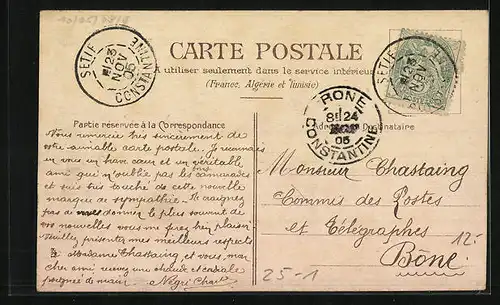 CARTE POSTALE
A utiliser seulement dans le service intérieur
(France, Algérie et Tunisie)
SETIF
23
NOV
05
CONSTANTINE
SETIF
23
NOV
BONE
8E 24
05
CONSTANTINE
Partie réservée à la Correspondance
Vous remercie très sincèrement de
votre aimable carte postale. Je reconnais
en vous un brave cœur et un véritable
ami que n'oublie pas les bons camarades
et suis très touché de cette nouvelle
marque de sympathie. Ne craignez
pas de me donner le plus souvent de
vos nouvelles vous me ferez bien plaisir.
Veuillez présenter mes meilleurs respects
à Madame Chastaing et vous, mon
cher ami recevez une chaude et cordiale
poignée de main. Négri
Destinataire
Monsieur Chastaing
Commis des Postes
et Télégraphes
Bône
12.-
25-1